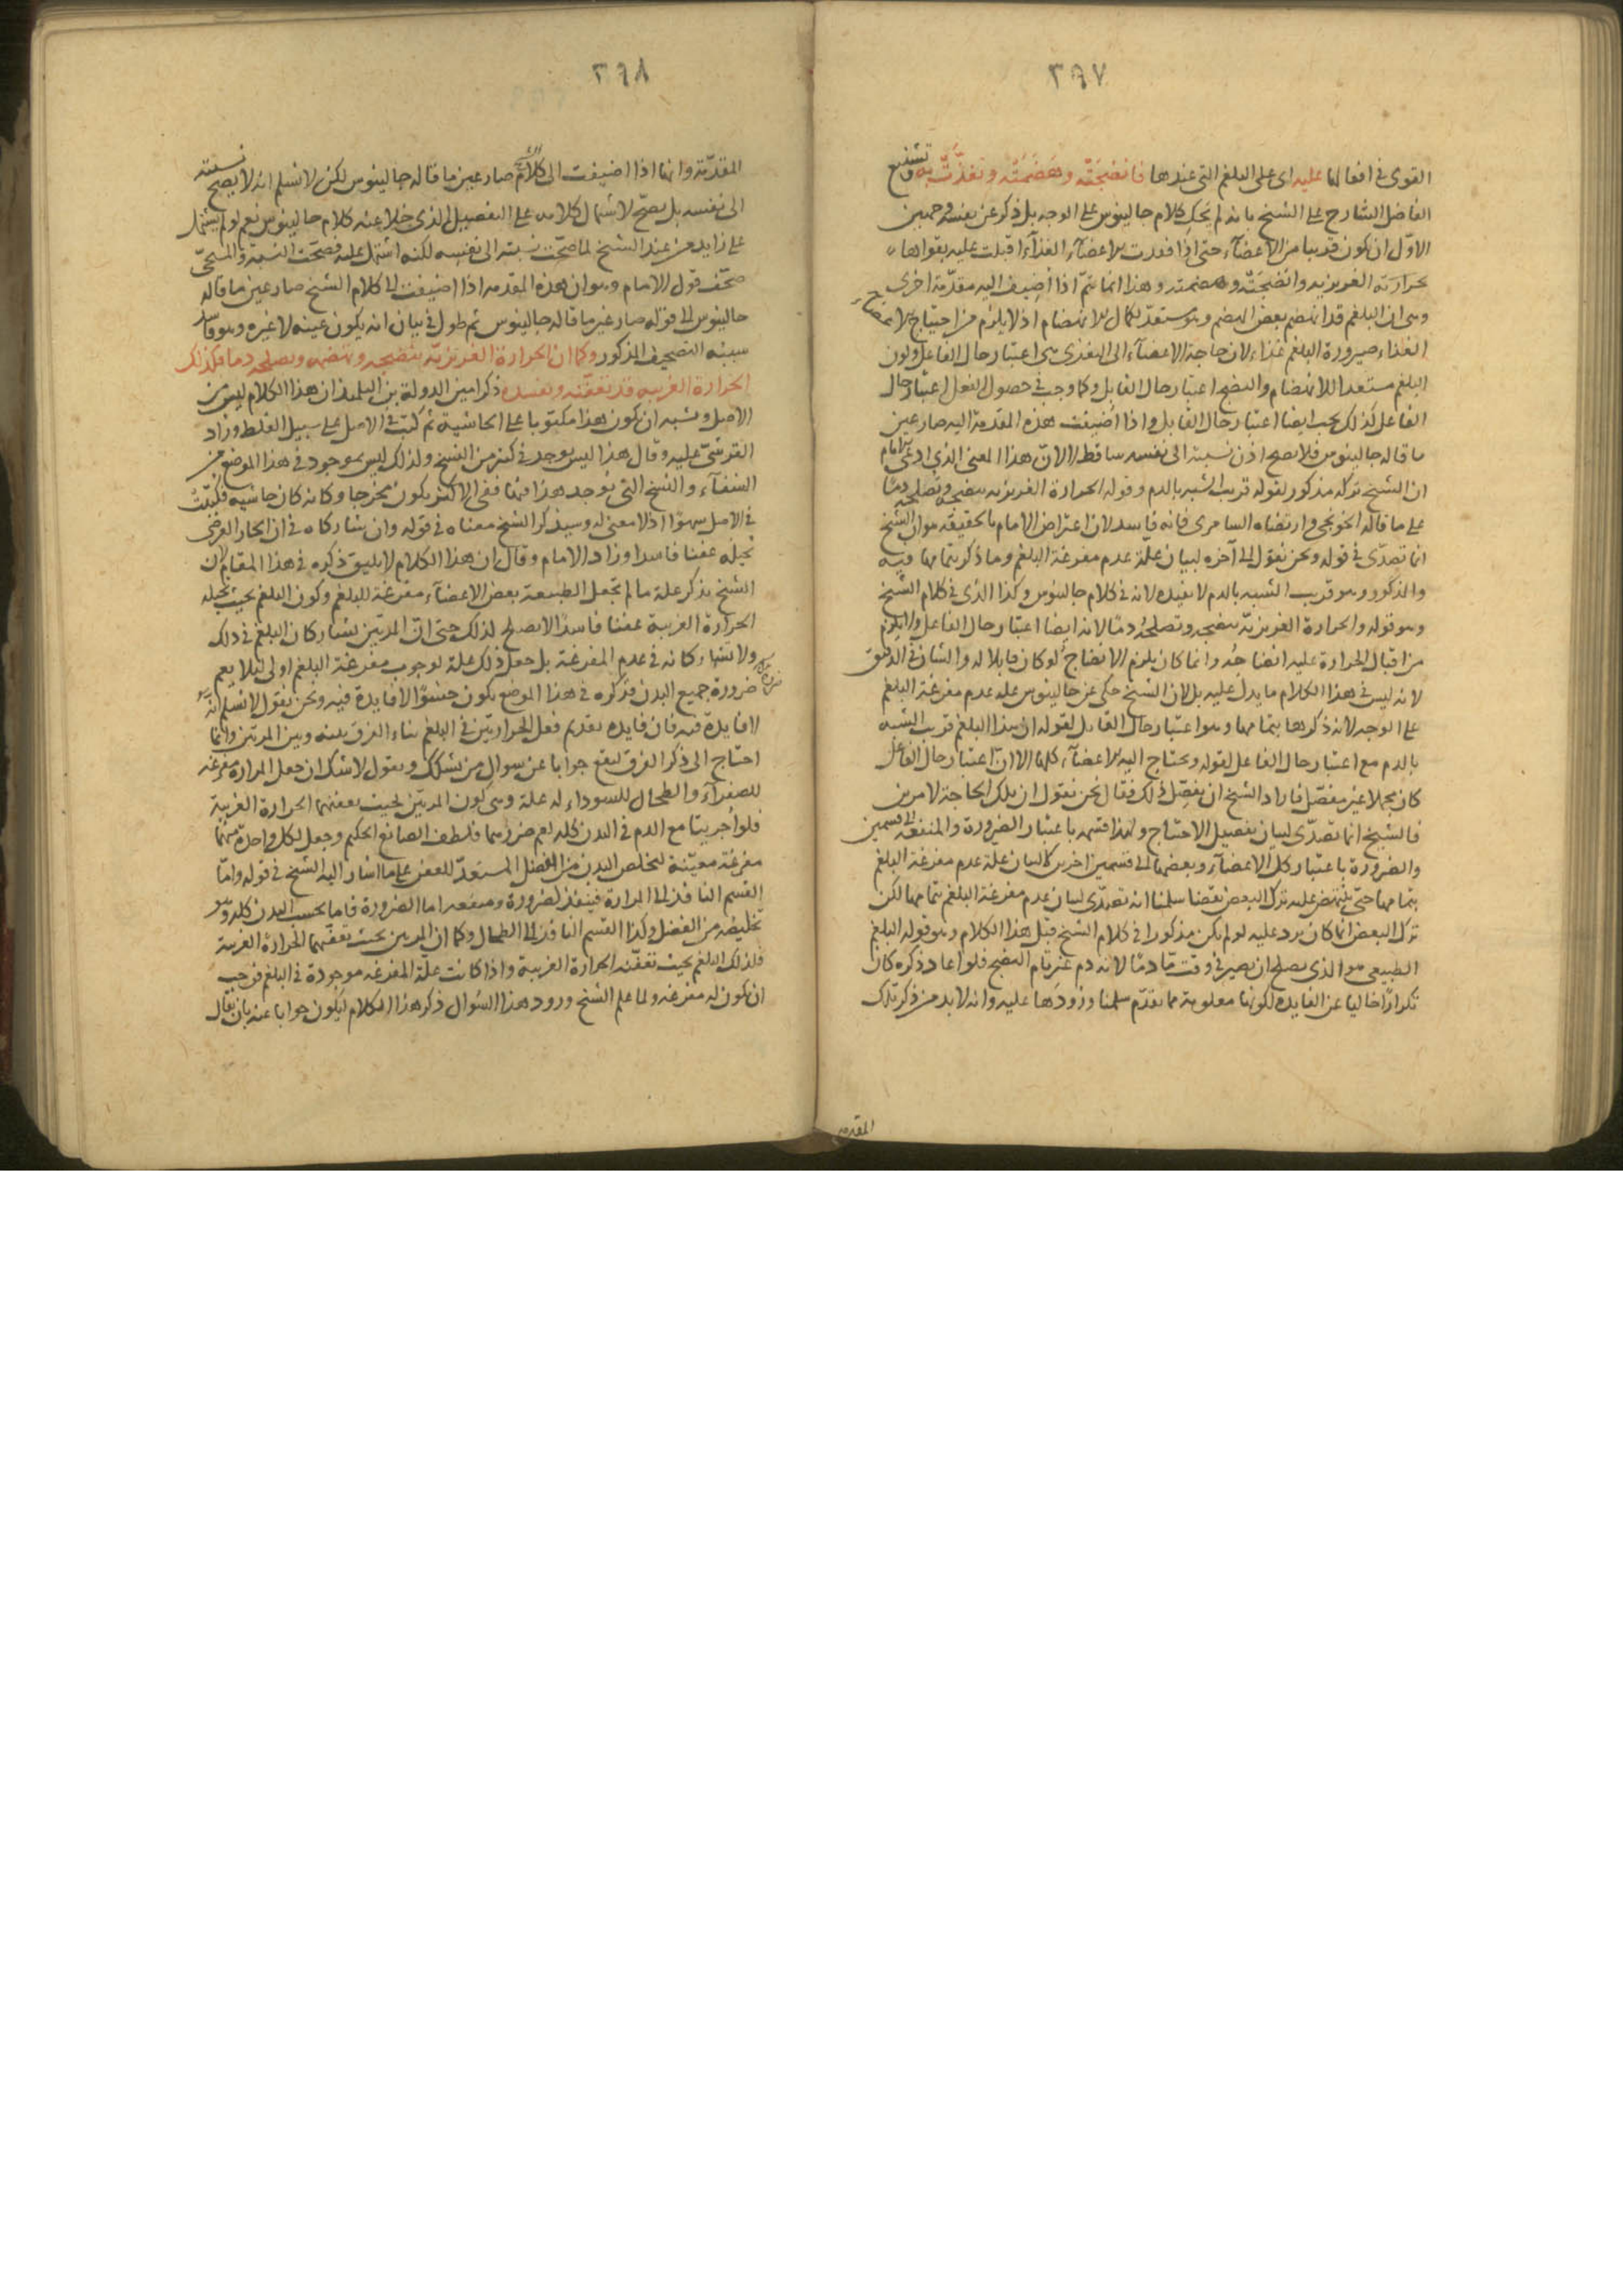 ٣٦٧
القوى فى افعالها عليه اى على البلغم التى عندها فانضجته وهضمته وتغذّت به وتشنيع
الفاضل الشارح على الشيخ بانه لم يحك كلام جالينوس على الوجه بل ذكر عن نفسه وجهين
الاوّل ان يكون قريبا من الاعضآء حتى اذا فقدت الاعضآء الغذآء اقبلت عليه بقواها
بحرارته الغريزيه وانضجته وهضمته وهذا انما يتمّ اذا اضيف اليه مقدّمة اخرى
وهى ان البلغم قد انهضم بعض الهضم وهو مستعدّ لكمال الانهضام اذ لا يلزم من احتياج الاعضاء الى
الغذاء صيرورة البلغم غذاء لان حاجة الاعضآء الى التغذى هى اعتبار حال الفاعل وكون
البلغم مستعدا للانهضام والنضج اعتبار حال القابل وكما وجب فى حصول الفعل اعتبار حال
الفاعل كذلك يجب ايضا اعتبار حال القابل واذا اضيفت هذه المقدمة اليه صار عين
ما قاله جالينوس فلا يصح اذن نسبته الى نفسه ساقط لا لانّ هذا المعنى الذى ادعى الامام
ان الشيخ تركه مذكور لقوله قريب الشبه بالدم وقوله الحرارة الغريزيه تنضجه وتصلحه دمًا
على ما قاله الخونجى وارتضاه السامرى فانه فاسد لان اعتراض الامام بالحقيقه هو ان الشيخ
انما تصدّى فى قوله ونحن نقول الى آخره لبيان علّة عدم مفرغة البلغم وما ذكر بتمامها فيه
والمذكور وهو قريب الشبه بالدم لا يفيده لانه فى كلام جالينوس وكذا الذى فى كلام الشيخ
وهو قوله والحرارة الغريزيّة تنضجه وتصلحه دمًا لانه ايضا اعتبار حال الفاعل ولا يلزم
من اقبال الحرارة عليه انضاجه وانما كان يلزم الانضاج لو كان قابلا له والشان فى ذلك
لانه ليس فى هذا الكلام ما يدل عليه بل لان الشيخ حكى عن جالينوس علّه عدم مفرغة البلغم
على الوجه لانه ذكرها بتمامها وهو اعتبار حال القابل لقوله ان هذا البلغم قريب الشبه
بالدم مع اعتبار حال الفاعل لقوله ويحتاج اليه الاعضآء كلها الا ان اعتبار حال الفاعل
كان مجملا غير مفصّل فاراد الشيخ ان يفصّل ذلك فقال نحن نقول ان تلك الحاجة لامرين
فالشيخ انما تصدّى لبيان تفصيل الاحتياج ولهذا قسمه باعتبار الضرورة والمنفعه الى قسمين
والضرورة باعتبار كل الاعضآء وبعضها الى قسمين اخرين لا لبيان علة عدم مفرغة البلغم
بتمامها حتى ينتهض عليه ترك البعض نقضا سلمنا انه تصدّى لبيان عدم مفرغة البلغم بتمامها لكن
ترك البعض انما كان يرد عليه لو لم يكن مذكورا فى كلام الشيخ قبل هذا الكلام وهو قوله البلغم
الطبيعى هو الذى يصلح ان يصير فى وقت مّا دمًا لانه دم غير تام النضج فلو اعاد ذكره كان
تكرارًا خاليا عن الفايده لكونها معلومة مما تقدّم سلمنا ورودها عليه وانه لا بد من ذكر تلك
المقدمه
٣٦٨
المقدّمة وانها اذا اضيفت الى كلام الشيخ صار عين ما قاله جالينوس لكن لا نسلم انه لا يصح نسبته
الى نفسه بل يصحّ لاشتمال كلامه على التفصيل الذى خلا عنه كلام جالينوس نعم لو لم يشتمل
على زايد من عند الشيخ لما صحّت نسبته الى نفسه لكنه اشتمل عليه فصحّت النسبة والمسيحى
صحّف قول الامام وهو ان هذه المقدمه اذا اضيفت الى كلام الشيخ صار عين ما قاله
جالينوس الى قوله صار غير ما قاله جالينوس ثم طول فى بيان انه يكون عينه لا غيره وهو فاسد
سببه التصحيف المذكور وكما ان الحرارة الغريزيّة تنضجه وتهضمه وتصلحه دما فكذلك
الحرارة الغريبه قد تعفّنه وتفسده ذكر امين الدولة بن التلميذ ان هذا الكلام ليس من
الاصل ويشبه ان يكون هذا مكتوبا على الحاشية ثم كتب فى الاصل على سبيل الغلط وزاد
القرشى عليه وقال هذا ليس يوجد فى كثير من النسخ ولذلك ليس بموجود فى هذا الموضع من
الشفآء والنسخ التى يوجد هذا فيها ففى الاكثر يكون مخرجا وكانه كان حاشيه فكتبت
فى الاصل سهوًا اذ لا معنى له وسيذكر الشيخ معناه فى قوله وان شاركاه فى ان الحار العرضى
يجله عفنا فاسدا وزاد الامام وقال ان هذا الكلام لا يليق ذكره فى هذا المقام لان
الشيخ يذكر علة ما لم تجعل الطبيعة بعض الاعضآء مفرغة للبلغم وكون البلغم بحيث تحيله
الحرارة الغريبة عفنا فاسدًا لا يصلح لذلك حتى انّ المرتين يشاركان البلغم فى ذلك
ولا تشاركانه فى عدم المفرغة بل جعل ذلك علة لوجوب مفرغة البلغم اولى لئلا يعم
ضرره جميع البدن فذكره فى هذا الموضع يكون حشوًا لا فايدة فيه ونحن نقول لا نسلم انه
لا فايدة فيه فان فايده تقديم فعل الحرارتين فى البلغم بناء الفرق بينه وبين المرتين وانما
احتاج الى ذكر الفرق ليقع جوابا عن سوال من يشكك ويقول لا شك ان جعل المراره مفرغه
للصفرآء والطحال للسوداء له علة وهى كون المرتين بحيث يعفنهما الحرارة الغريبة
فلو اجريتا مع الدم فى البدن كله لعم ضررهما فلطف الصانع الحكيم وجعل لكل واحدة منهما
مفرغة معيّنة لتخلص البدن من الفضل المستعدّ للعفن على ما اشار اليه الشيخ فى قوله وامّا
القسم النافذ الى المرارة فينفذ لضرورة ومنفعه اما الضرورة فاما بحسب البدن كله وهو
تخليصه من الفضل وكذا القسم النافذ الى الطحال وكما ان المرتين بحيث تعفّنهما الحرارة الغريبة
فلذلك البلغم بحيث تعفّنه الحرارة الغريبة واذا كانت علّة المفرغه موجودة فى البلغم فوجب
ان يكون له مفرغه ولما علم الشيخ ورود هذا السؤال ذكر هذا الكلام ليكون جوابا عنه بان يقال